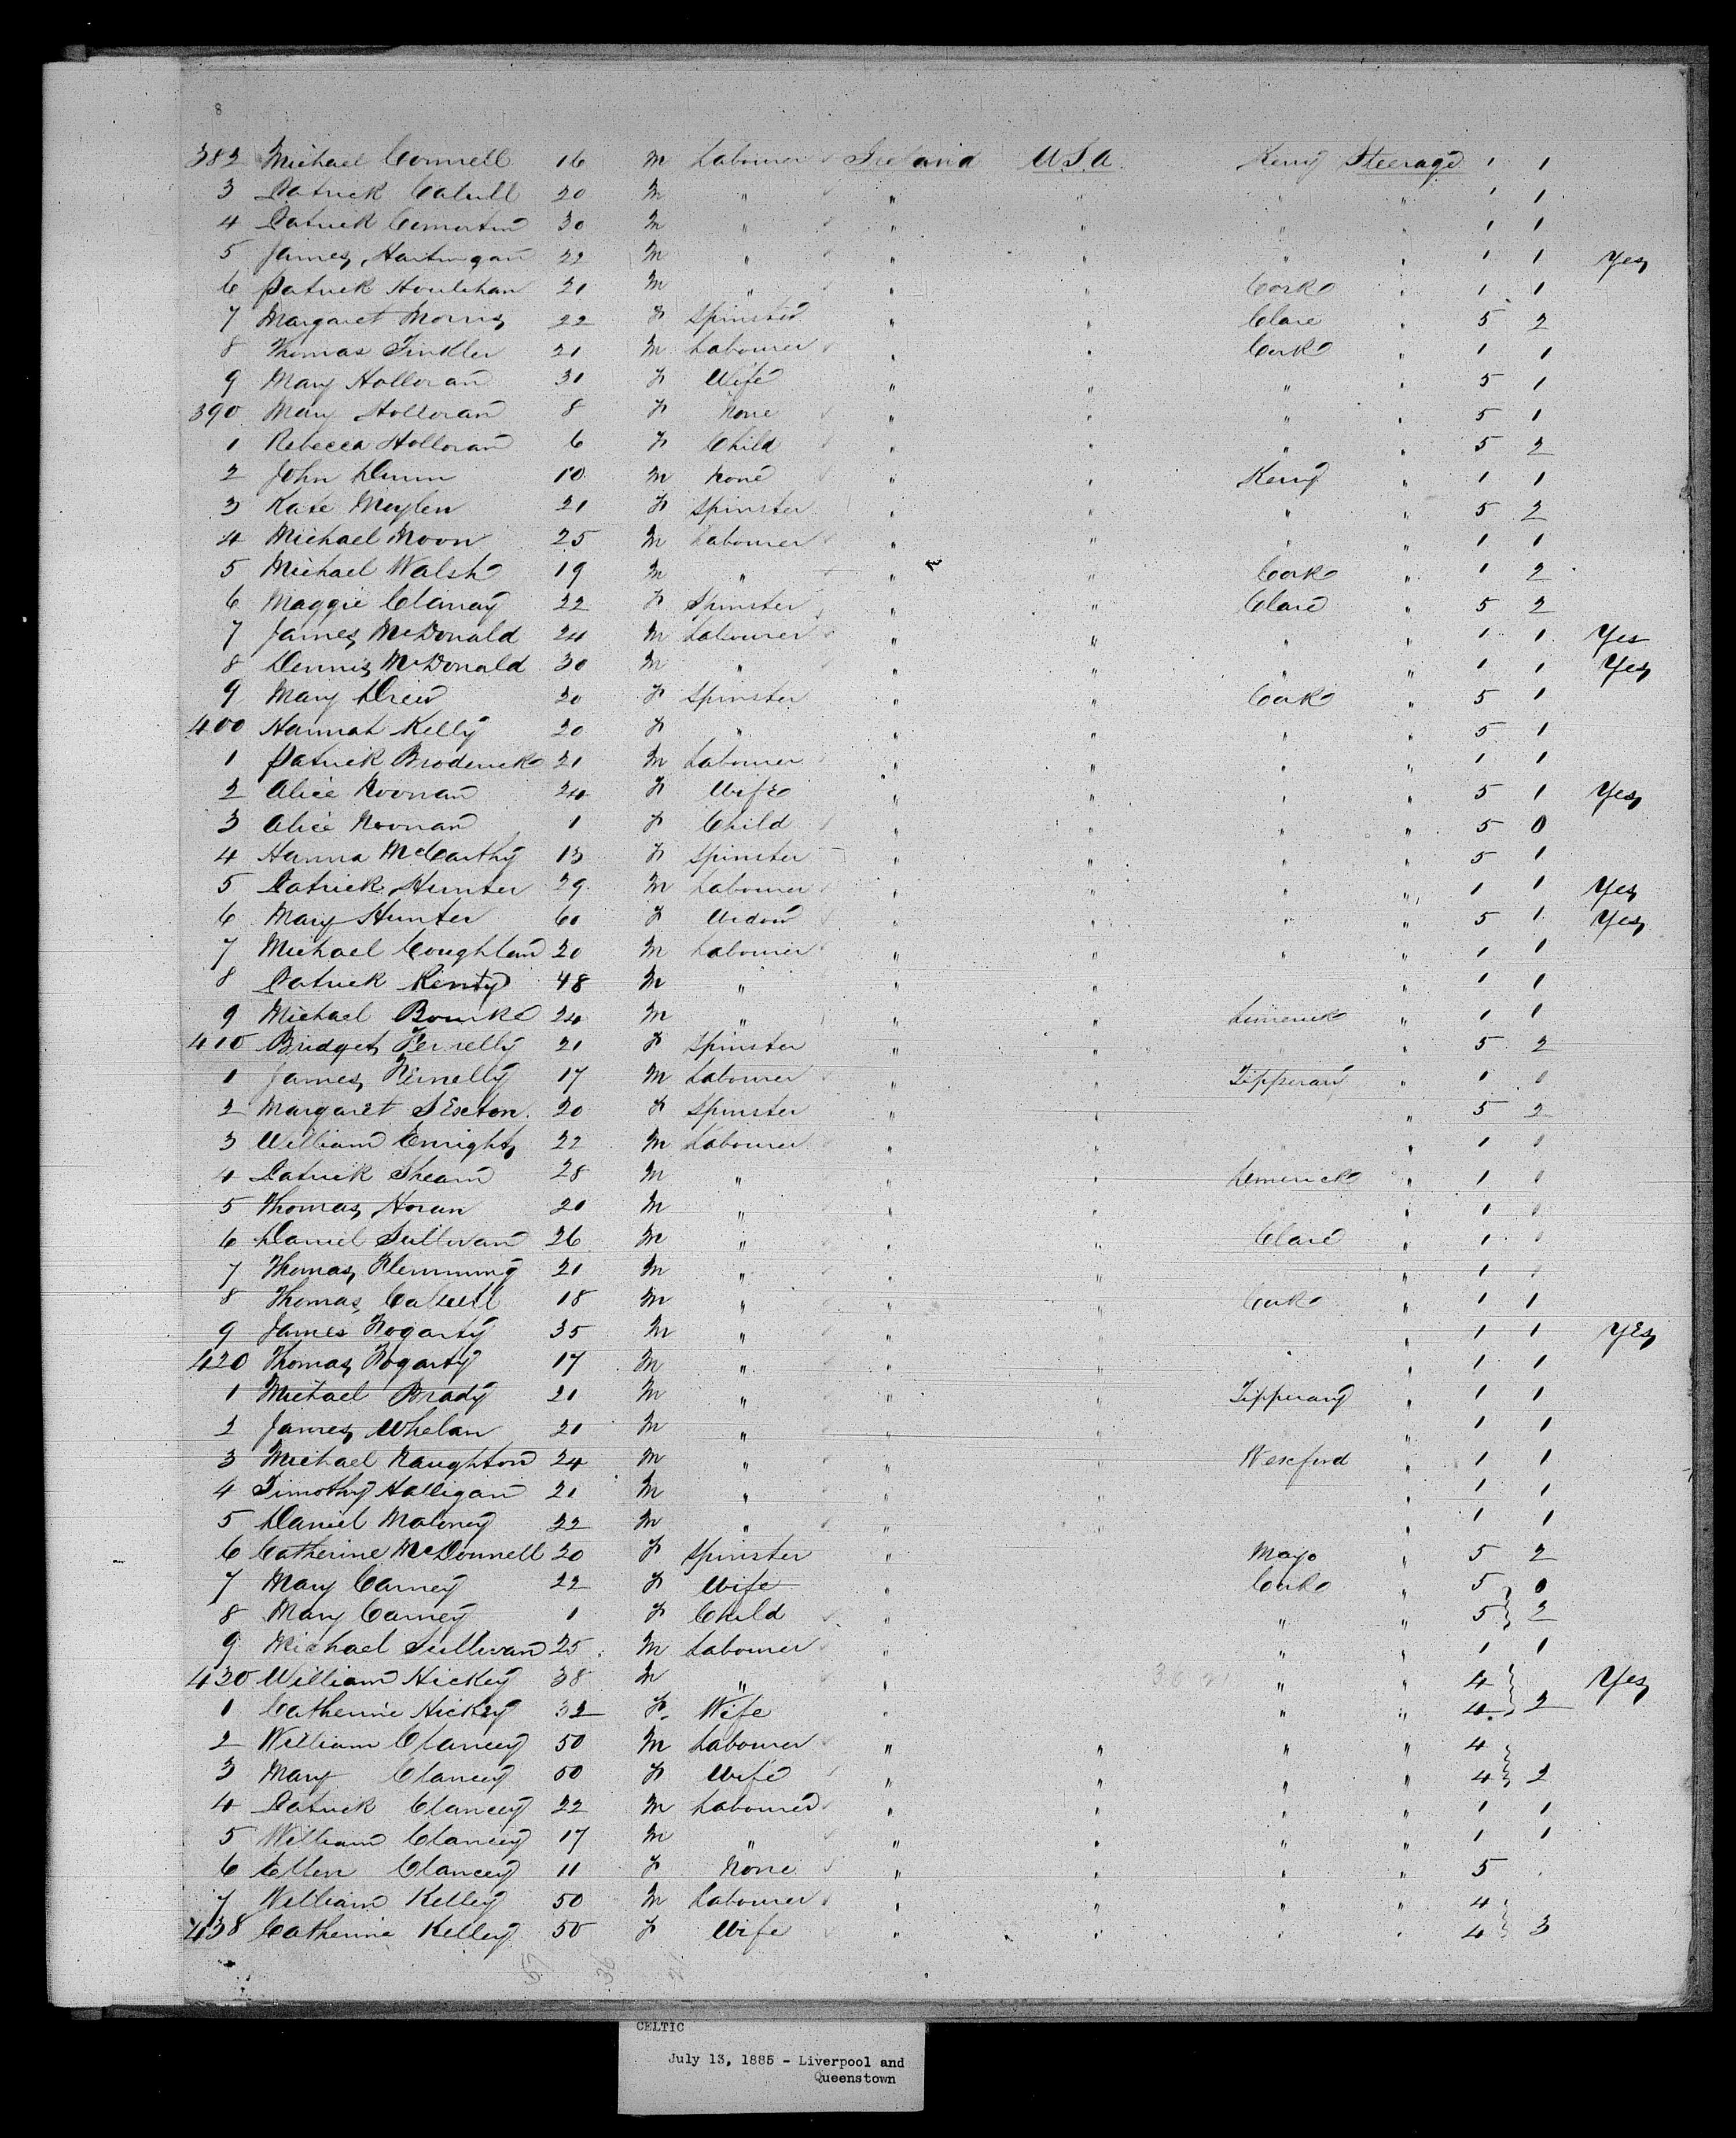 8
382 Michael Connell 16 M Labourer Ireland U.S.A. Kerry Steerage 1 1
3 Patrick Cahill 20 M " " " " " 1 1
4 Patrick 30 M " " " " " 1 1
5 James Hartingan 22 M " " " " " 1 1 Yes
6 Patrick Houlihan 21 M " " " Cork " 1 1
7 Margaret Morris 22 F Spinster " " Clare " 5 2
8 Thomas Finkler 21 M Labourer " " Cork " 1 1
9 Mary Holloran 31 F Wife " " " " 5 1
390 Mary Holloran 8 F None " " " " 5 1
1 Rebecca Holloran 6 F Child " " " " 5 2
2 John Dunn 10 M None " " Kerry " 1 1
3 Kate Meylen 21 F Spinster " " " " 5 2
4 Michael Moon 25 M Labourer " " " " 1 1
5 Michael Walsh 19 M " " " Cork " 1 2
6 Maggie Clanay 22 F Spinster " " Clare " 5 2
7 James McDonald 24 M Labourer " " " " 1 1 Yes
8 Dennis McDonald 30 M " " " " " 1 1 Yes
9 Mary Drew 20 F Spinster " " Cork " 5 1
400 Hannah Kelly 20 F " " " " " 5 1
1 Patrick Broderick 21 M Labourer " " " " 1 1
2 Alice Noonan 24 F Wife " " " " 5 1 Yes
3 Alice Noonan 1 F Child " " " " 5 0
4 Hanna McCarthy 13 F Spinster " " " " 5 1
5 Patrick Hunter 29 M Labourer " " " " 1 1 Yes
6 Mary Hunter 60 F Widow " " " " 5 1 Yes
7 Michael Coughlan 20 M Labourer " " " " 1 1
8 Patrick 48 M " " " " 1 1
9 Michael Bourke 24 M " " " Limerick " 1 1
410 Bridget Fennelly 21 F Spinster " " " " 5 2
1 James Fennelly 17 M Labourer " " Tipperary " 1 0
2 Margaret SExton 20 F Spinster " " " 5 2
3 William Enright 22 M Labourer " " " " 1 0
4 Patrick Shean 28 M " " " Limerick " 1 0
5 Thomas Horan 20 M " " " " " 1 0
6 Daniel Sullivan 26 M " " " Clare " 1 0
7 Thomas Flemming 21 M " " " " " 1 0
8 Thomas 18 M " " " Cork " 1 1
9 James Fogarty 35 M " " " " 1 1 YEs
420 Thomas Fogarty 17 M " " " " " 1 1
1 Michael Brady 21 M " " " Tipperary " 1 1
2 James Whelan 21 M " " " " 1 1
3 Michael Naughton 24 M " " " Wexford " 1 1
4 Timothy Halligan 21 M " " " 1 1
5 Daniel Maloney 22 M " " " " 1 1
6 Catherine McDonnell 20 F Spinster " Mayo " 5 2
7 Mary Carney 22 F Wife " Cork " 5 0
8 Mary Carney 1 F Child " " " 5 2
9 Michael Sullivan 25 M Labourer " " " 1 1
430 William Hickey 38 M " " " " 4 Yes
1 Catherine Hickey 32 F Wife " " " 4 2
2 William Clancey 50 M Labourer " " " " 4
3 Mary Clancey 50 F Wife " " " " 4 2
4 Patrick Clancey 22 M Labourer " " " " 1 1
5 William Clancey 17 M " " " " " 1 1
6 Ellen Clancey 11 F None " " " " 5
7 William Kelley 50 M Labourer " " " " 4
438 Catherine Kelley 50 F Wife " " " " 4 3
57 36 21
CELTIC
July 13, 1885 - Liverpool and
Queenstown